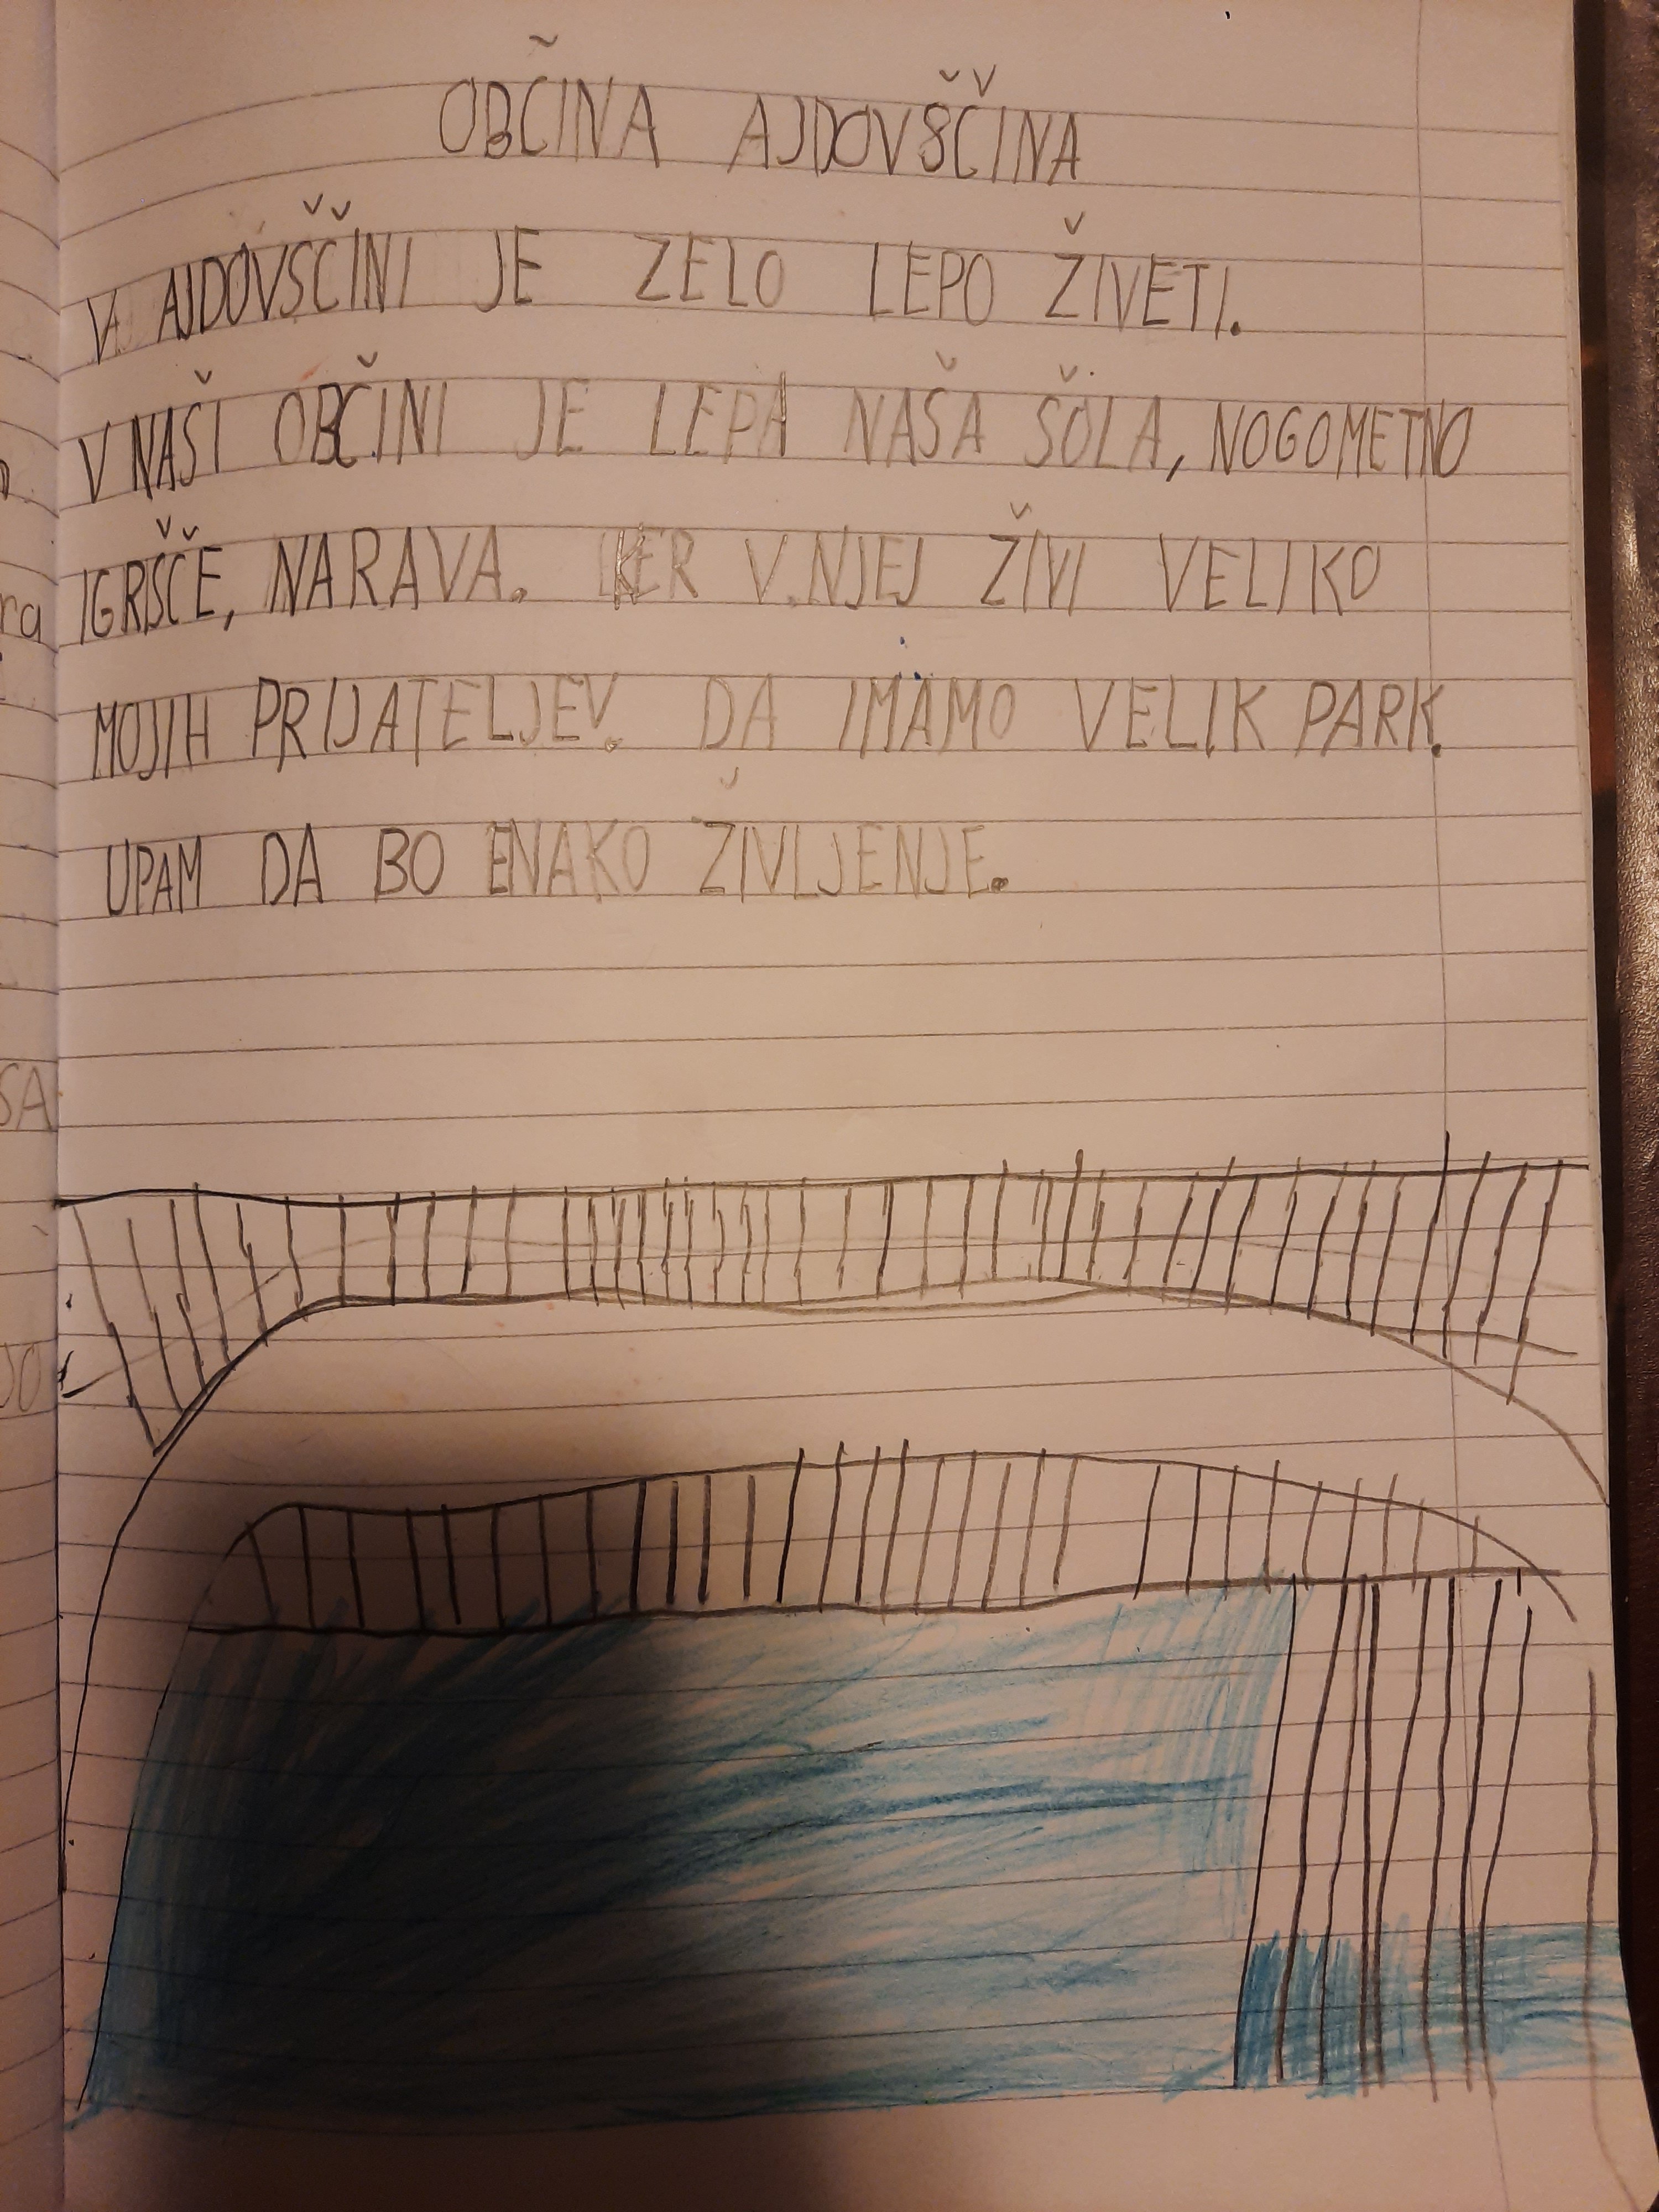 OBČINA AJDOVŠČINA
V AJDOVŠČINI JE ZELO LEPO ŽIVETI.
V NAŠI OBČINI JE LEPA NAŠA ŠOLA, NOGOMETNO
IGRIŠČE, NARAVA. KER V NJEJ ŽIVI VELIKO
MOJIH PRIJATELJEV. DA IMAMO VELIK PARK.
UPAM DA BO ENAKO ŽIVLJENJE.